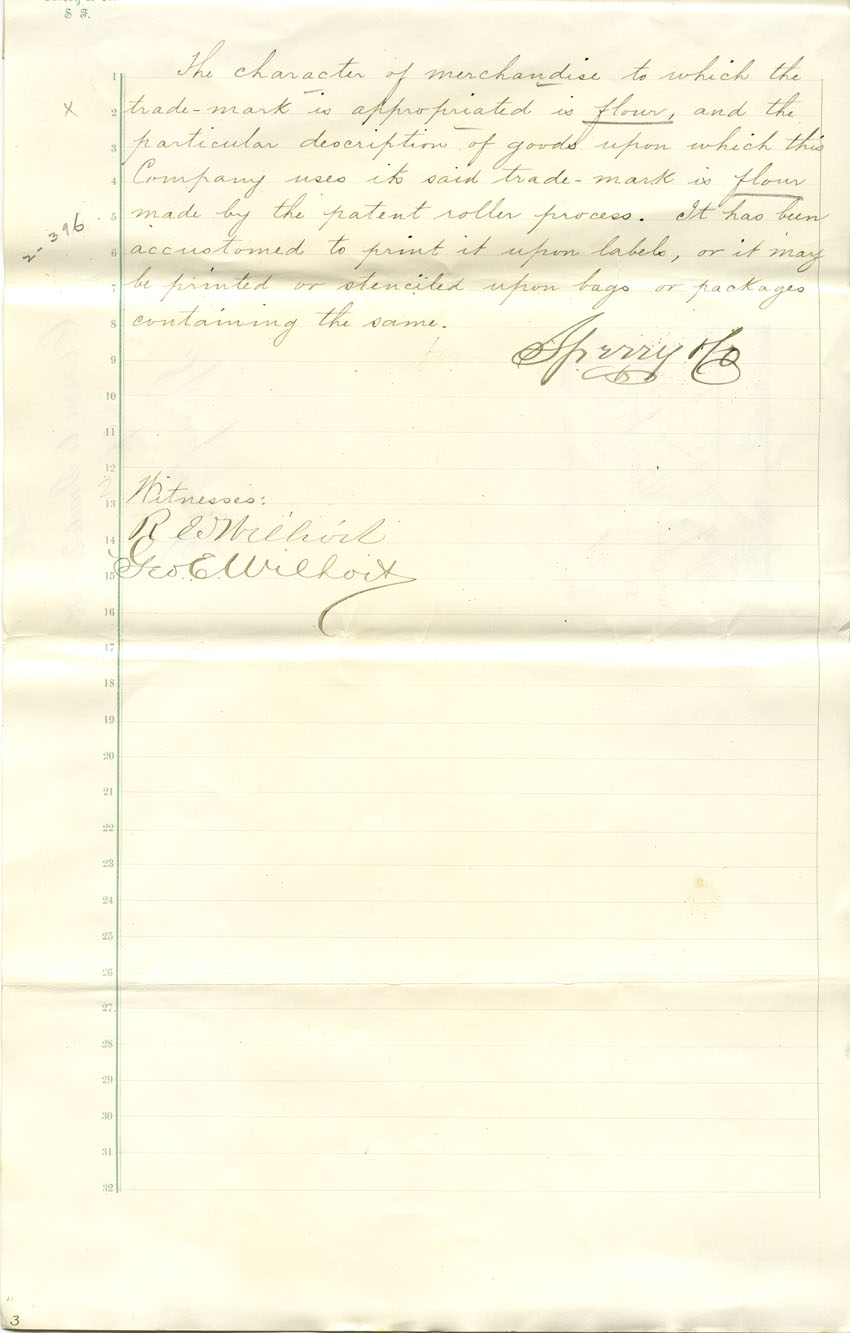 S. F.
1 The character of merchandise to which the
X 2 trade-mark is appropriated is flour, and the
3 particular description of goods upon which this
4 Company uses its said trade-mark is flour
2-396 5 made by the patent roller process. It has been
6 accustomed to print it upon labels, or it may
7 be printed or stenciled upon bags or packages
8 containing the same.
9 Sperry & Co
10
11
12
13 Witnesses:
14 R E Wilhoit
15 Geo. E. Wilhoit
16
17
18
19
20
21
22
23
24
25
26
27
28
29
30
31
32
3